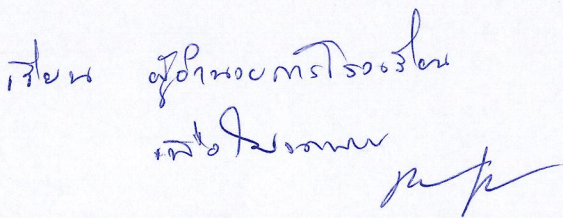 เรียน ผู้อำนวยการโรงเรียน
เพื่อโปรดทราบ